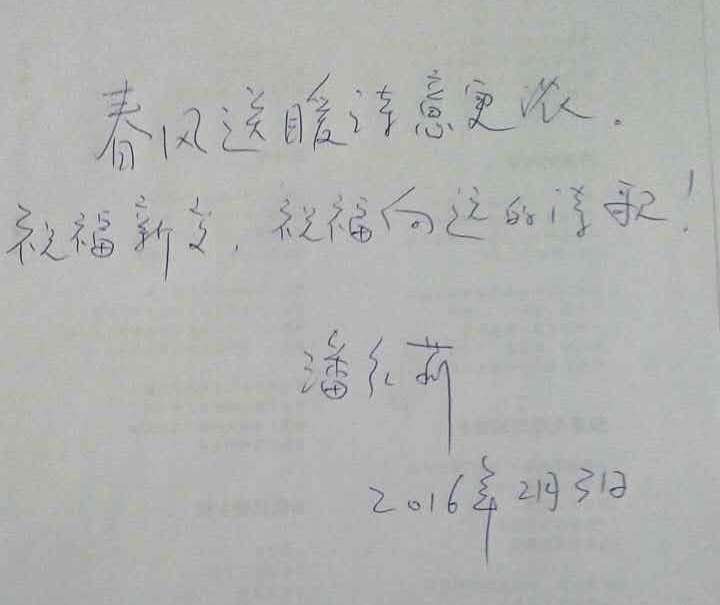 春风送暖诗意更浓.
祝福新文,祝福向远的诗歌!
潘红莉
2016年2月3日